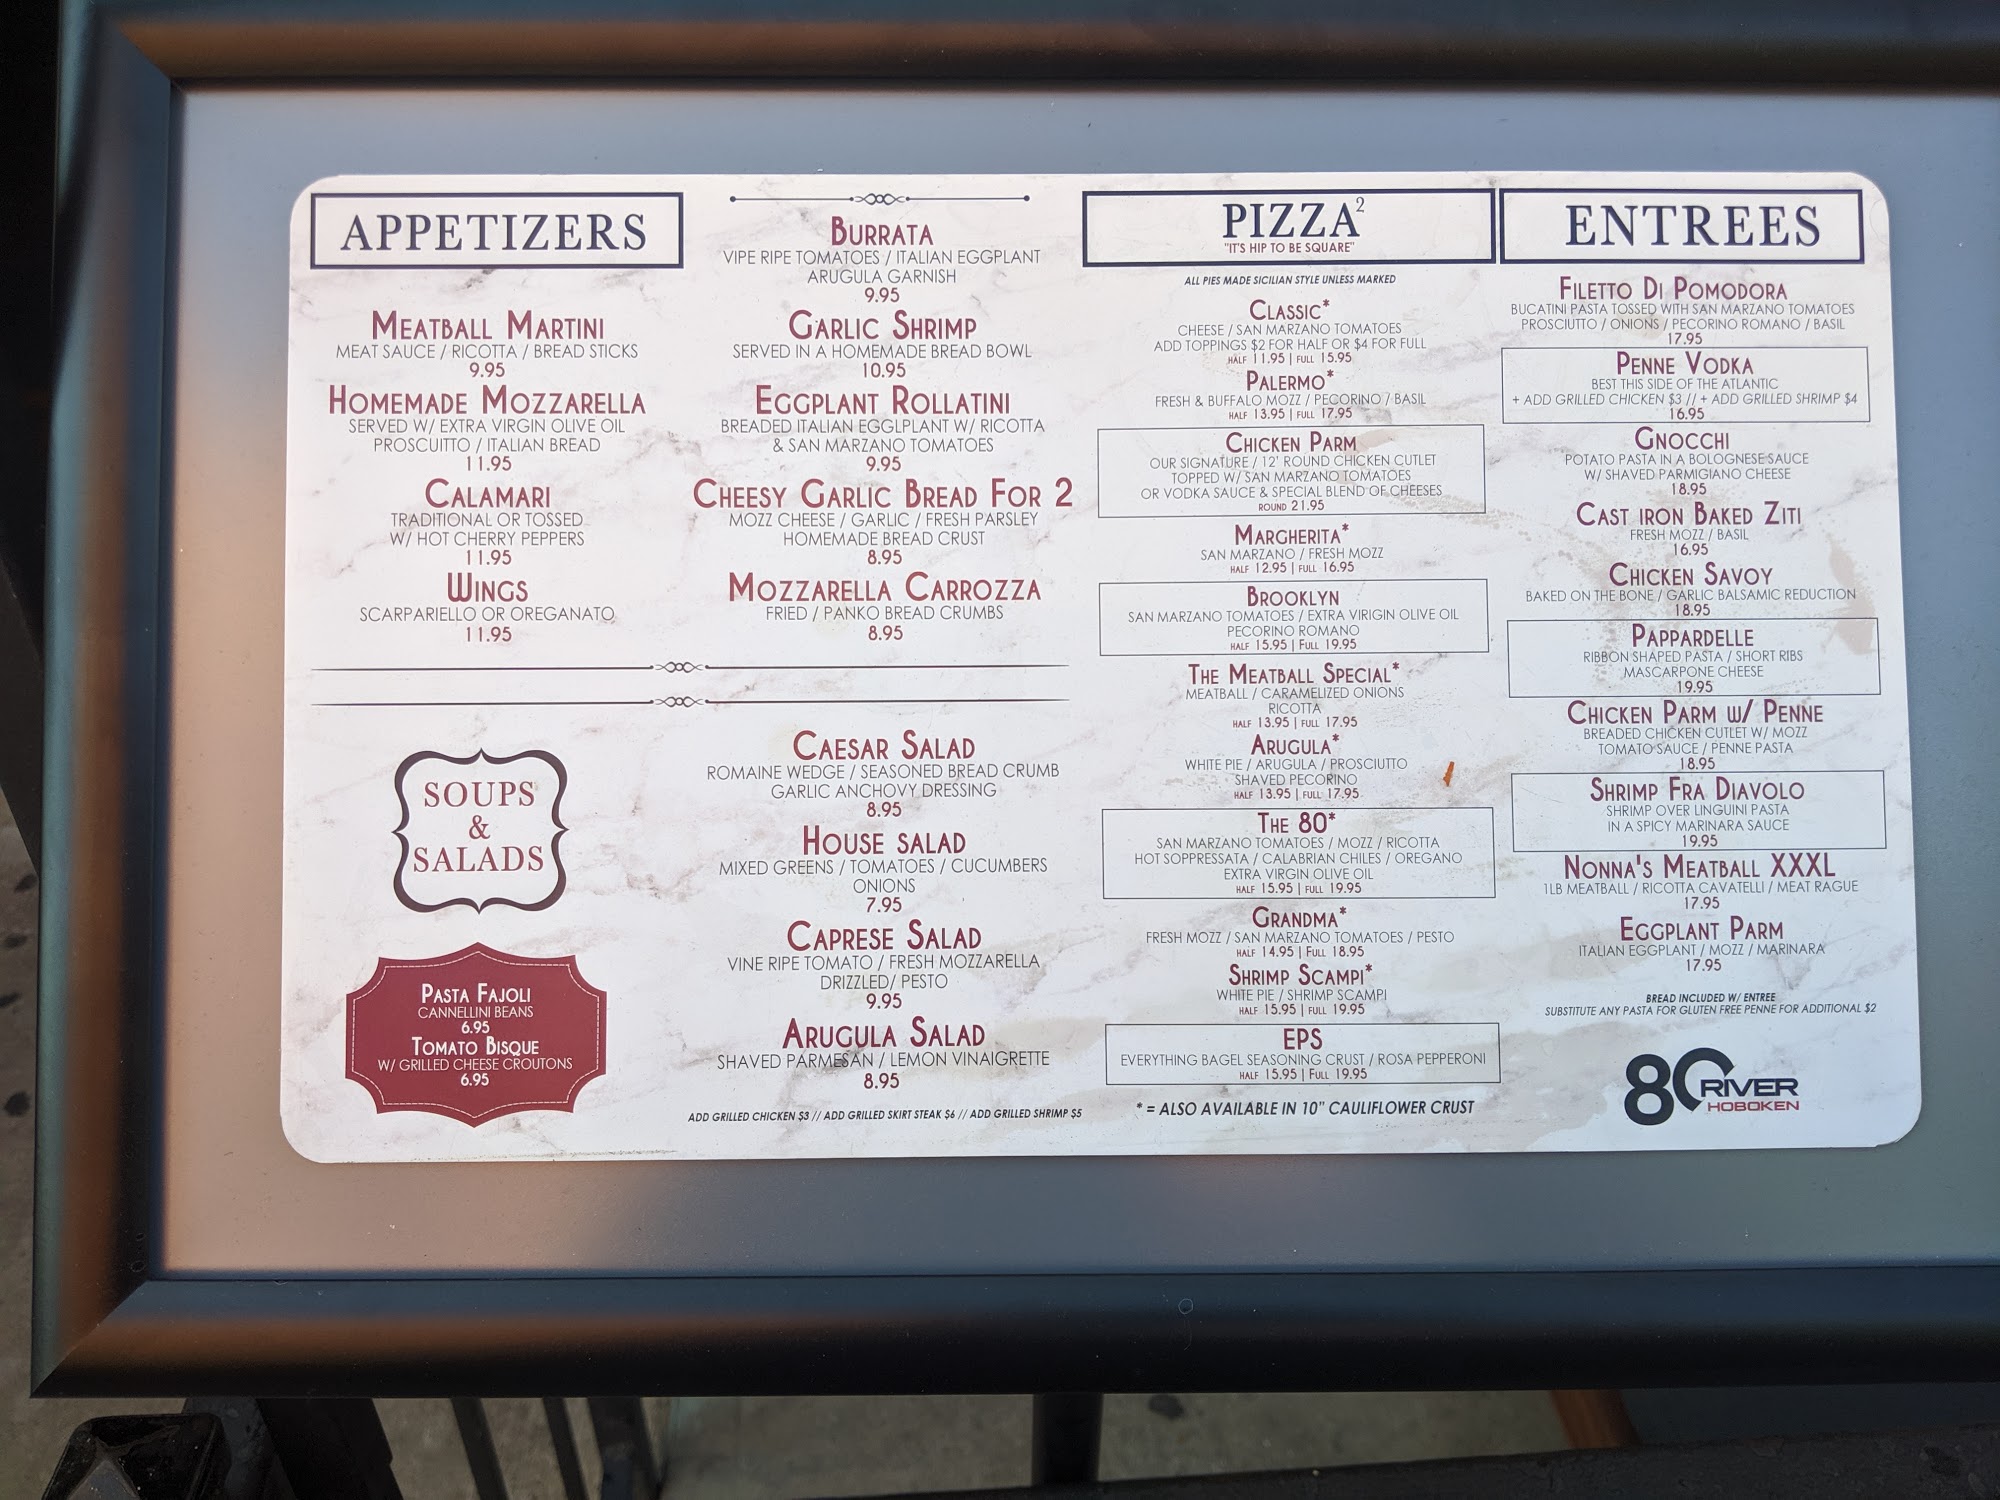 APPETIZERS
MEATBALL MARTINI
MEAT SAUCE / RICOTTA / BREAD STICKS
9.95
HOMEMADE MOZZARELLA
SERVED W/ EXTRA VIRGIN OLIVE OIL
PROSCUITTO / ITALIAN BREAD
11.95
CALAMARI
TRADITIONAL OR TOSSED
W/ HOT CHERRY PEPPERS
11.95
WINGS
SCARPARIELLO OR OREGANATO
11.95
BURRATA
VIPE RIPE TOMATOES / ITALIAN EGGPLANT
ARUGULA GARNISH
9.95
GARLIC SHRIMP
SERVED IN A HOMEMADE BREAD BOWL
10.95
EGGPLANT ROLLATINI
BREADED ITALIAN EGGLPLANT W/ RICOTTA
& SAN MARZANO TOMATOES
9.95
CHEESY GARLIC BREAD FOR 2
MOZZ CHEESE / GARLIC / FRESH PARSLEY
HOMEMADE BREAD CRUST
8.95
MOZZARELLA CARROZZA
FRIED / PANKO BREAD CRUMBS
8.95
SOUPS
&
SALADS
PASTA FAJOLI
CANNELLINI BEANS
6.95
TOMATO BISQUE
W/ GRILLED CHEESE CROUTONS
6.95
CAESAR SALAD
ROMAINE WEDGE / SEASONED BREAD CRUMB
GARLIC ANCHOVY DRESSING
8.95
HOUSE SALAD
MIXED GREENS / TOMATOES / CUCUMBERS
ONIONS
7.95
CAPRESE SALAD
VINE RIPE TOMATO / FRESH MOZZARELLA
DRIZZLED/ PESTO
9.95
ARUGULA SALAD
SHAVED PARMESAN / LEMON VINAIGRETTE
8.95
ADD GRILLED CHICKEN $3 // ADD GRILLED SKIRT STEAK $6 // ADD GRILLED SHRIMP $5
PIZZA²
"IT'S HIP TO BE SQUARE"
ALL PIES MADE SICILIAN STYLE UNLESS MARKED
CLASSIC*
CHEESE / SAN MARZANO TOMATOES
ADD TOPPINGS $2 FOR HALF OR $4 FOR FULL
HALF 11.95 | FULL 15.95
PALERMO*
FRESH & BUFFALO MOZZ / PECORINO / BASIL
HALF 13.95 | FULL 17.95
CHICKEN PARM
OUR SIGNATURE / 12' ROUND CHICKEN CUTLET
TOPPED W/ SAN MARZANO TOMATOES
OR VODKA SAUCE & SPECIAL BLEND OF CHEESES
ROUND 21.95
MARGHERITA*
SAN MARZANO / FRESH MOZZ
HALF 12.95 | FULL 16.95
BROOKLYN
SAN MARZANO TOMATOES / EXTRA VIRGIN OLIVE OIL
PECORINO ROMANO
HALF 15.95 | FULL 19.95
THE MEATBALL SPECIAL*
MEATBALL / CARAMELIZED ONIONS
RICOTTA
HALF 13.95 | FULL 17.95
ARUGULA*
WHITE PIE / ARUGULA / PROSCIUTTO
SHAVED PECORINO
HALF 13.95 | FULL 17.95
THE 80*
SAN MARZANO TOMATOES / MOZZ / RICOTTA
HOT SOPPRESSATA / CALABRIAN CHILES / OREGANO
EXTRA VIRGIN OLIVE OIL
HALF 15.95 | FULL 19.95
GRANDMA*
FRESH MOZZ / SAN MARZANO TOMATOES / PESTO
HALF 14.95 | FULL 18.95
SHRIMP SCAMPI*
WHITE PIE / SHRIMP SCAMPI
HALF 15.95 | FULL 19.95
EPS
EVERYTHING BAGEL SEASONING CRUST / ROSA PEPPERONI
HALF 15.95 | FULL 19.95
* = ALSO AVAILABLE IN 10" CAULIFLOWER CRUST
ENTREES
FILETTO DI POMODORA
BUCATINI PASTA TOSSED WITH SAN MARZANO TOMATOES
PROSCIUTTO / ONIONS / PECORINO ROMANO / BASIL
17.95
PENNE VODKA
BEST THIS SIDE OF THE ATLANTIC
+ ADD GRILLED CHICKEN $3 // + ADD GRILLED SHRIMP $4
16.95
GNOCCHI
POTATO PASTA IN A BOLOGNESE SAUCE
W/ SHAVED PARMIGIANO CHEESE
18.95
CAST IRON BAKED ZITI
FRESH MOZZ / BASIL
16.95
CHICKEN SAVOY
BAKED ON THE BONE / GARLIC BALSAMIC REDUCTION
18.95
PAPPARDELLE
RIBBON SHAPED PASTA / SHORT RIBS
MASCARPONE CHEESE
19.95
CHICKEN PARM W/ PENNE
BREADED CHICKEN CUTLET W/ MOZZ
TOMATO SAUCE / PENNE PASTA
18.95
SHRIMP FRA DIAVOLO
SHRIMP OVER LINGUINI PASTA
IN A SPICY MARINARA SAUCE
19.95
NONNA'S MEATBALL XXXL
1LB MEATBALL / RICOTTA CAVATELLI / MEAT RAGUE
17.95
EGGPLANT PARM
ITALIAN EGGPLANT / MOZZ / MARINARA
17.95
BREAD INCLUDED W/ ENTREE
SUBSTITUTE ANY PASTA FOR GLUTEN FREE PENNE FOR ADDITIONAL $2
80 RIVER
HOBOKEN